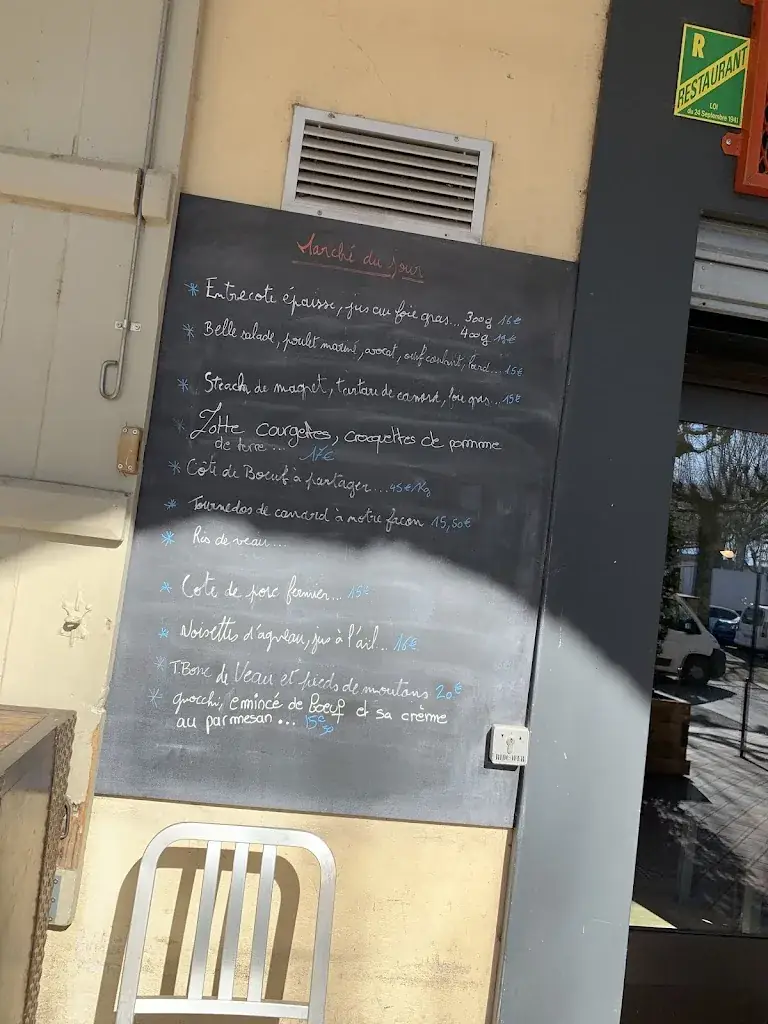 R
RESTAURANT
LOI
du 24 Septembre 1941
Marché du jour
* Entrecote épaisse, jus au foie gras... 300g 16€
400g 19€
* Belle salade, poulet mariné, avocat, oeuf coulant, lard... 15€
* Steack de magret, tartare de canard, foie gras... 15€
* Lotte courgettes, croquettes de pomme
de terre ... 17€
* Côte de Boeuf à partager ... 45€/Kg
* Tournedos de canard à notre facon 15,50€
* Ris de veau...
* Cote de porc fermier... 15€
* Noisettes d'agneau, jus à l'ail... 16€
* T.Bone de Veau et pieds de moutons 20€
* gnocchi, emincé de Boeuf et sa crème
au parmesan ... 15€50